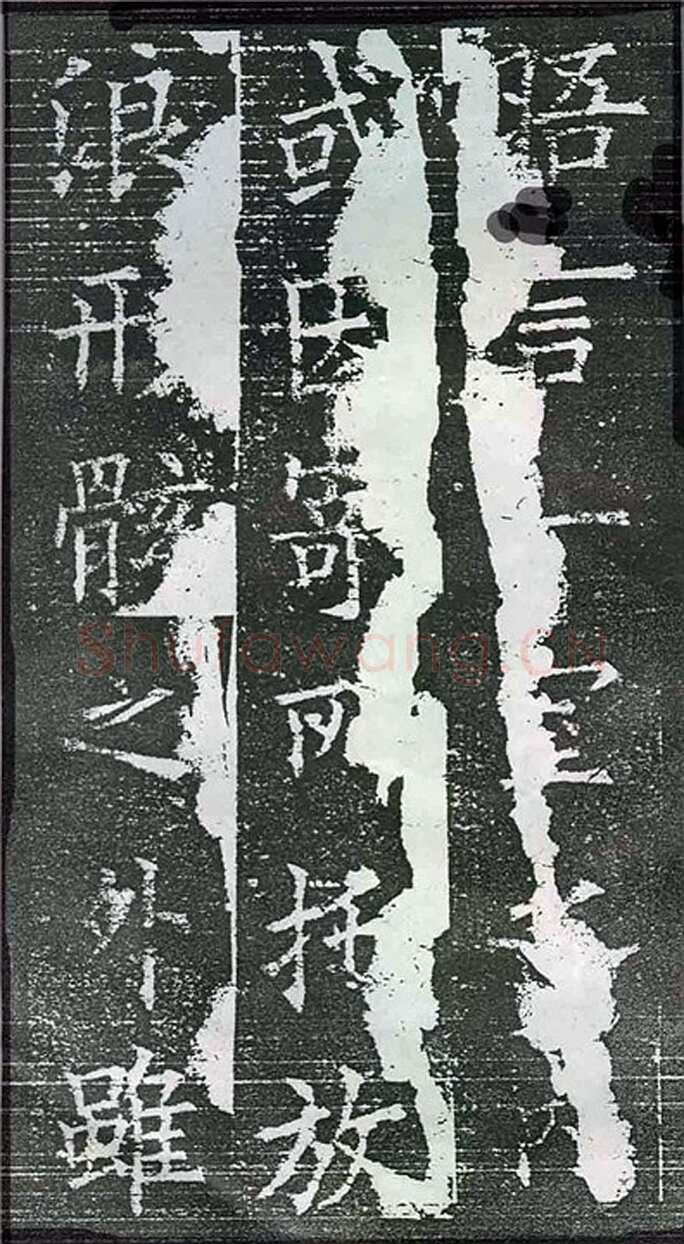 晤言一室
或因寄所托放
浪形骸之外雖
Shufawang.CN